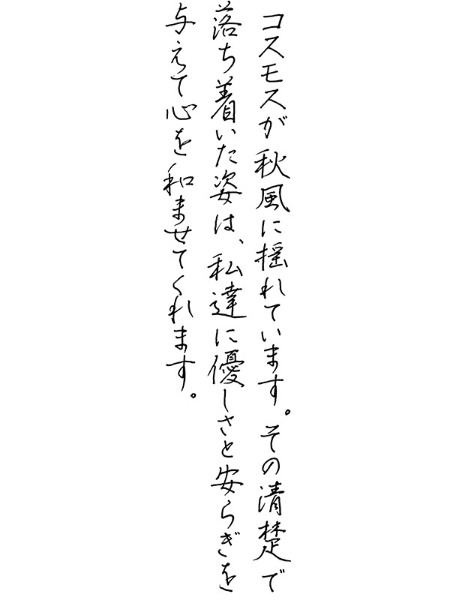 コスモスが秋風に揺れています。その清楚で
落ち着いた姿は、私達に優しさと安らぎを
与えて心を和ませてくれます。